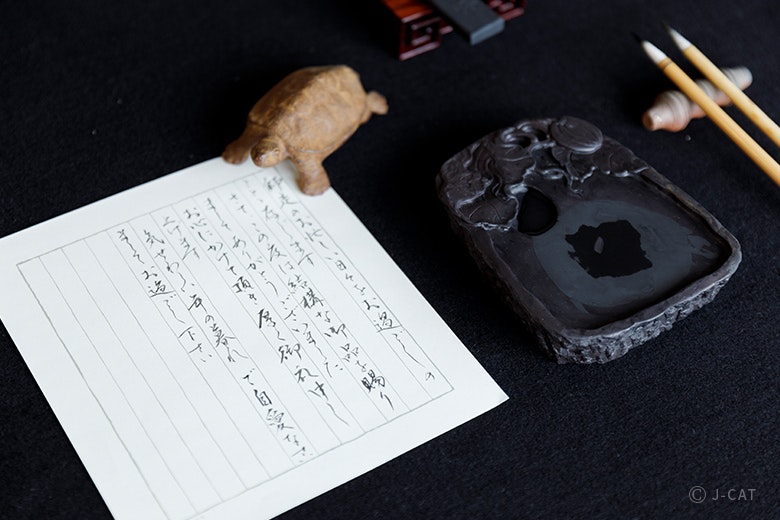 師走のお忙しい日々をお過ごしの
ことと存じます
さて この度は結構な御品を賜り
まして ありがとうございました
お心にかけて頂き厚く御礼申し
上げます
気ぜわしい年の暮れ ご自愛なさい
ましてお過ごし下さい
© J-CAT